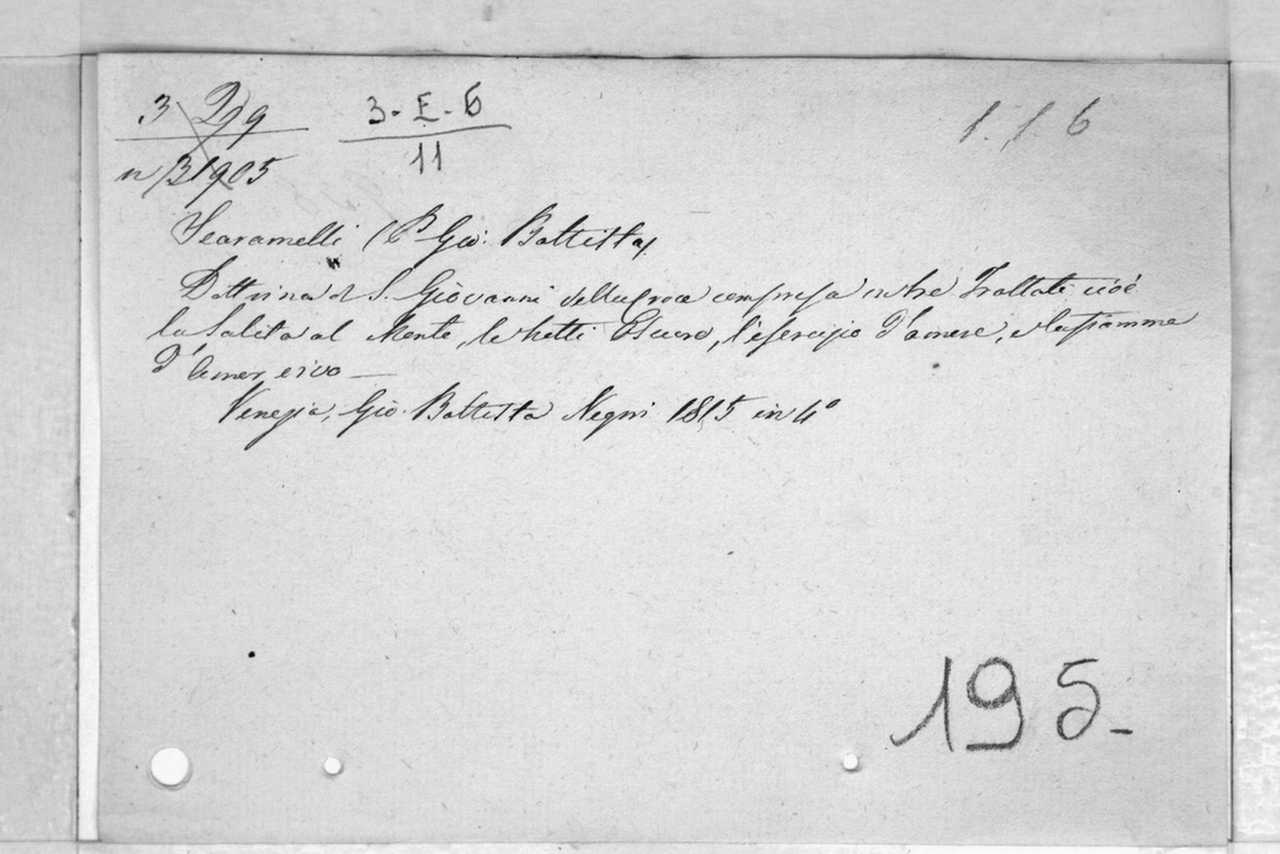 3 Dg 9 3-E-6 1. 1. 6
n 31905 11
Scaramelli (P. Gio: Battista)
Dottrina di S. Giovanni della Croce compresa in tre Trattati cioè
la Salita al Monte, le Notti Oscure, l'esercizio d'amore, e la fiamma
d'amor vivo —
Venezia, Gio. Battista Negri 1815 in 4°
195-